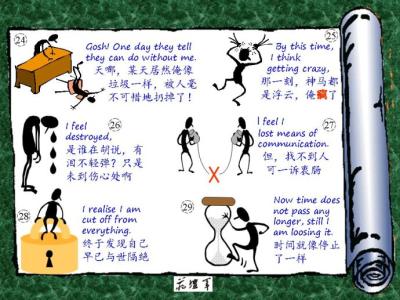 24
Gosh! One day they tell
they can do without me.
天哪，某天居然俺像
垃圾一样，被人毫
不可惜地扔掉了！
25
By this time,
I think
getting crazy,
那一刻，神马都
是浮云，俺疯了
26
I feel
destroyed,
是谁在胡说，有
泪不轻弹？只是
未到伤心处啊
27
I feel I
lost means of
communication.
但，找不到人
可一诉衷肠
X
28
I realise I am
cut off from
everything.
终于发现自己
早已与世隔绝
29
Now time does
not pass any
longer, still I
am loosing it.
时间就像停止
了一样